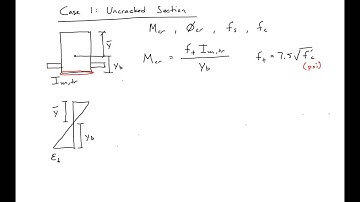 Case 1: Uncracked Section
Mcr , Øcr , fs , fc
ȳ
yb
Iun,tr
Mcr = ft Iun,tr / yb
ft = 7.5√f'c
(psi)
ȳ
yb
εt